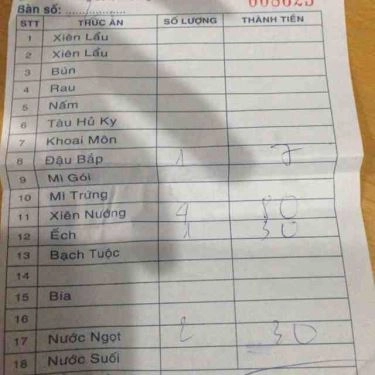 Bàn số:
STT THỨC ĂN SỐ LƯỢNG THÀNH TIỀN
1 Xiên Lẩu
2 Xiên Lẩu
3 Bún
4 Rau
5 Nấm
6 Tàu Hủ Ky
7 Khoai Môn
8 Đậu Bắp 1 7
9 Mì Gói
10 Mì Trứng
11 Xiên Nướng 4 80
12 Ếch 1 30
13 Bạch Tuộc
14
15 Bia
16
17 Nước Ngọt 2 30
18 Nước Suối